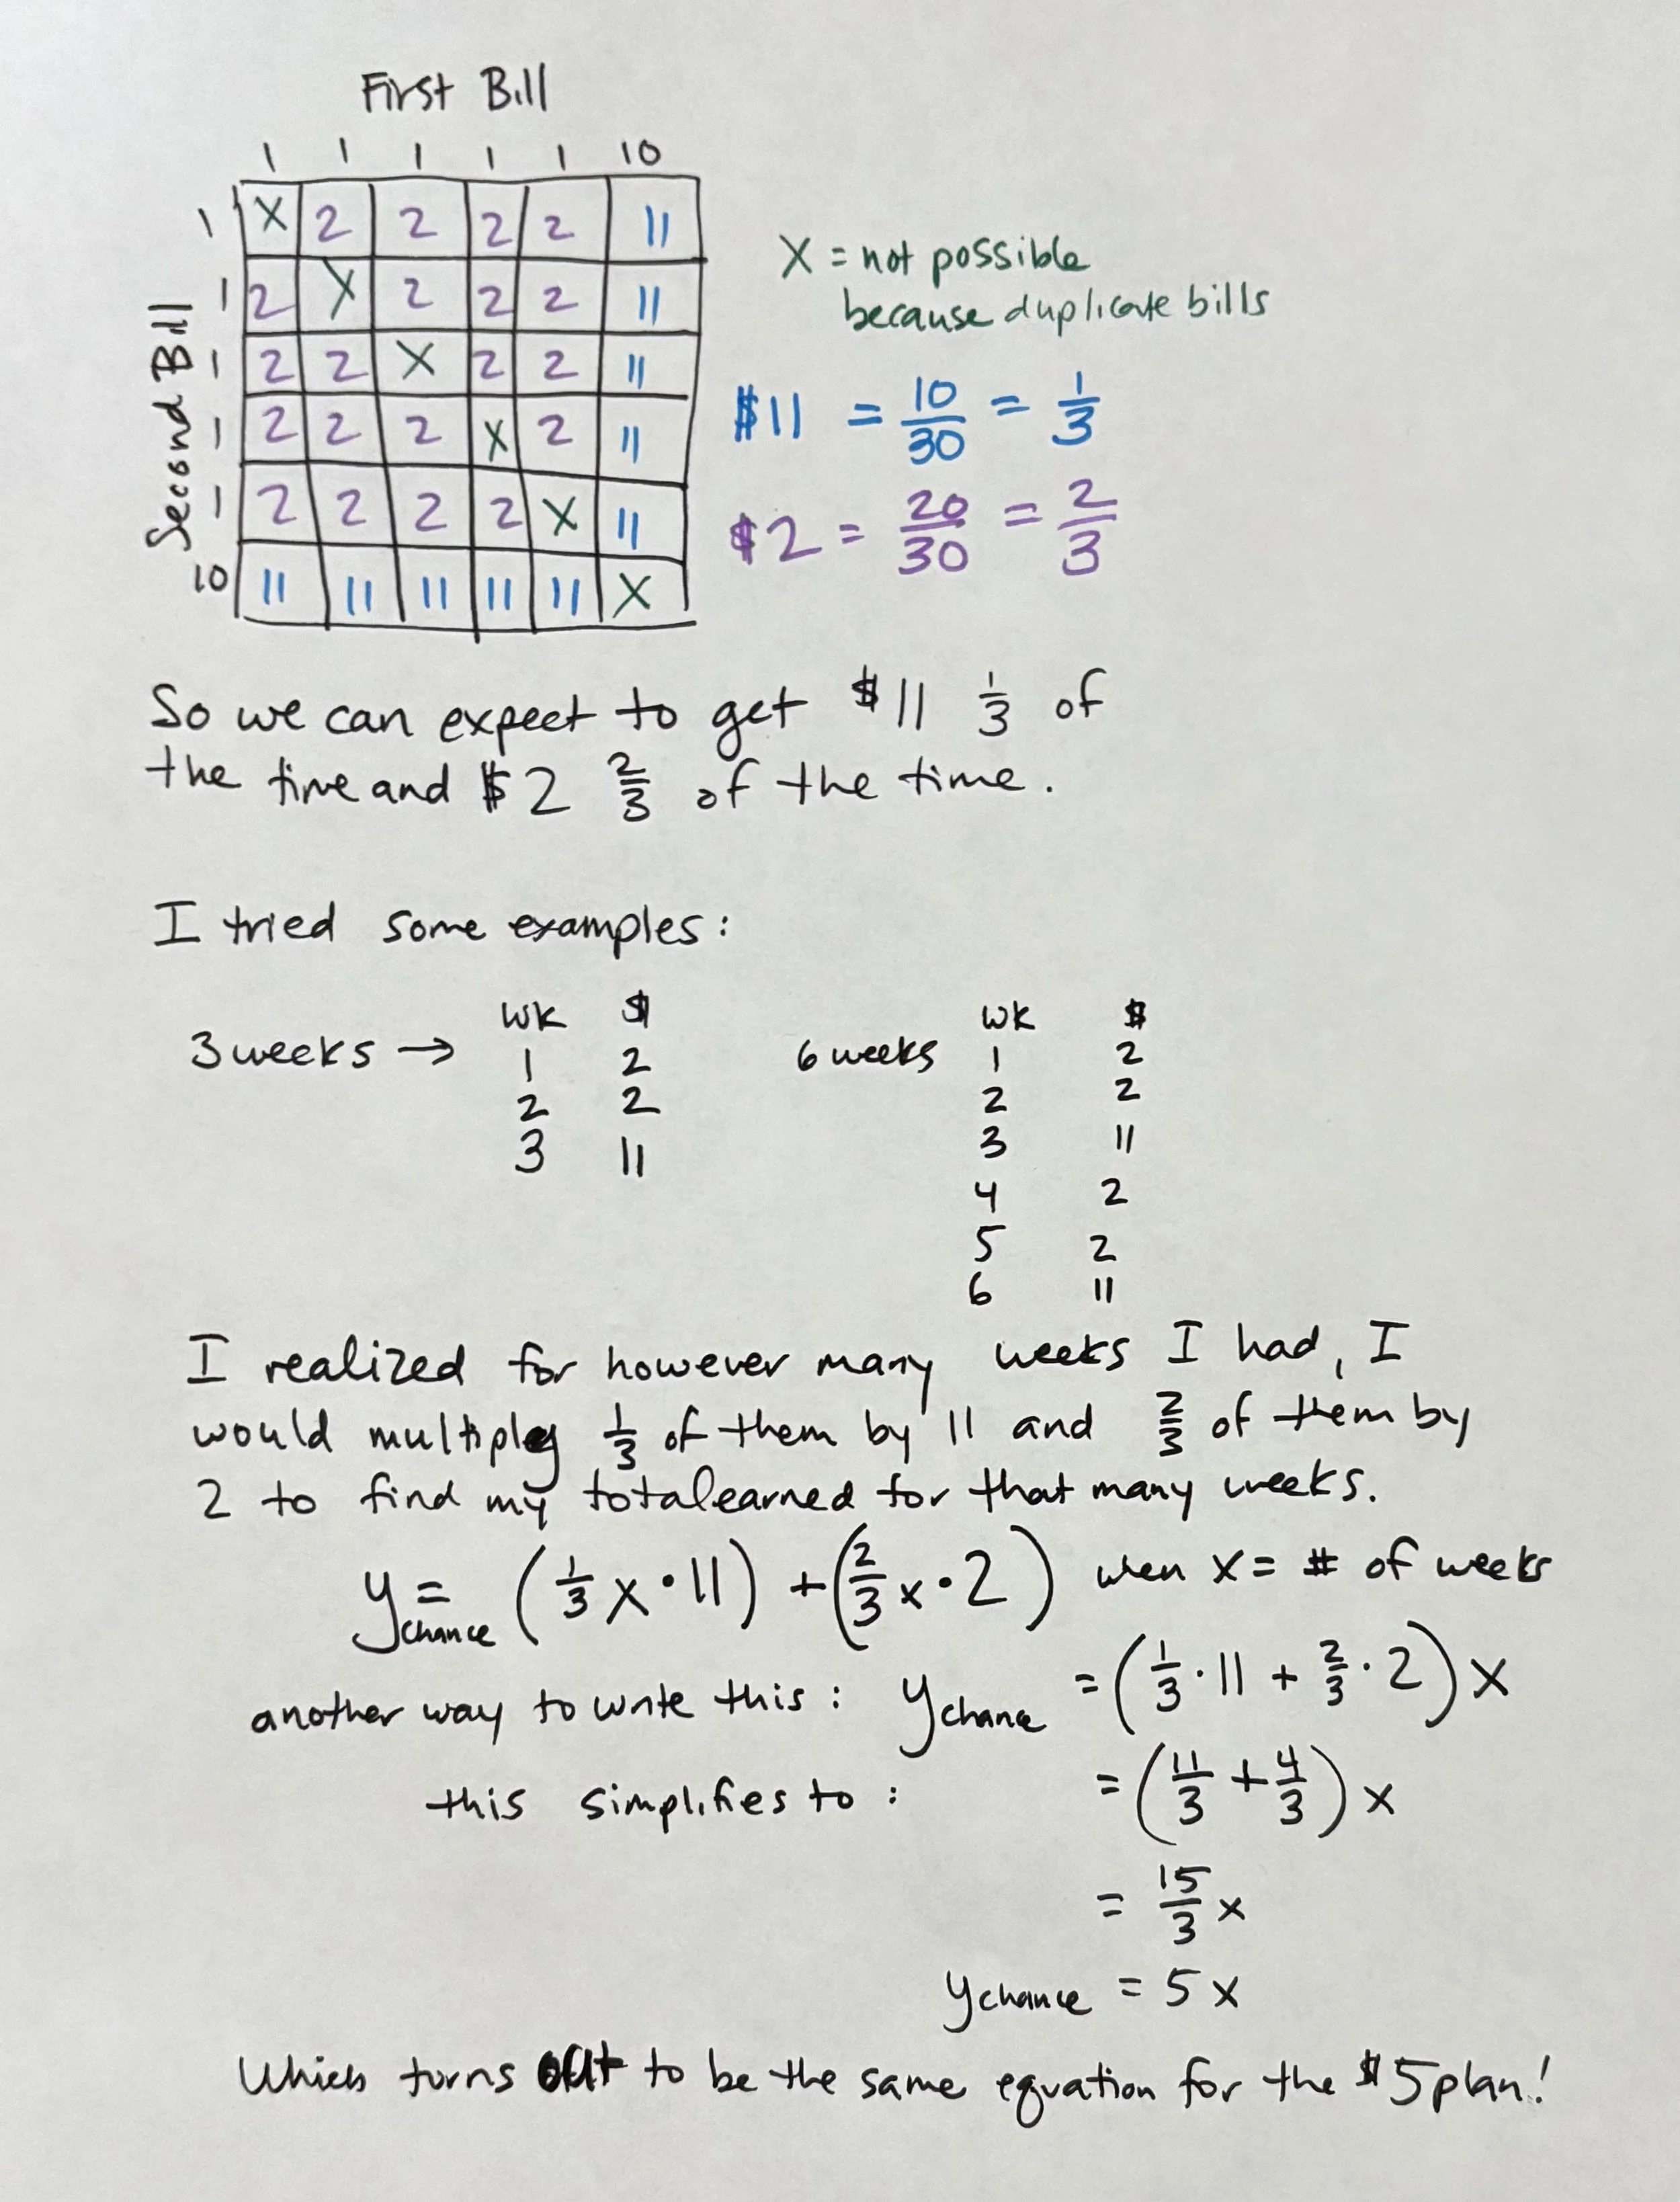 First Bill
1 1 1 1 1 10
Second Bill
1 X 2 2 2 2 11
1 2 X 2 2 2 11
1 2 2 X 2 2 11
1 2 2 2 X 2 11
1 2 2 2 2 X 11
10 11 11 11 11 11 X
X = not possible
because duplicate bills
$11 = 10/30 = 1/3
$2 = 20/30 = 2/3
So we can expect to get $11 1/3 of
the time and $2 2/3 of the time.
I tried some examples:
3 weeks →
wk $
1 2
2 2
3 11
6 weeks
wk $
1 2
2 2
3 11
4 2
5 2
6 11
I realized for however many weeks I had, I
would multiply 1/3 of them by 11 and 2/3 of them by
2 to find my total earned for that many weeks.
y chance = (1/3 x · 11) + (2/3 x · 2) when x = # of weeks
another way to write this: y chance = (1/3 · 11 + 2/3 · 2) x
this simplifies to: = (11/3 + 4/3) x
= 15/3 x
y chance = 5x
Which turns out to be the same equation for the $5 plan!